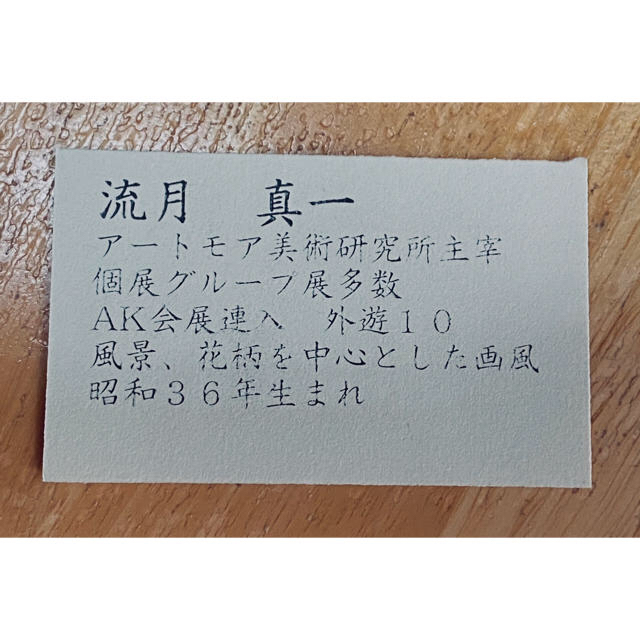 流月　真一
アートモア美術研究所主宰
個展グループ展多数
AK会展連入　外遊１０
風景、花柄を中心とした画風
昭和３６年生まれ